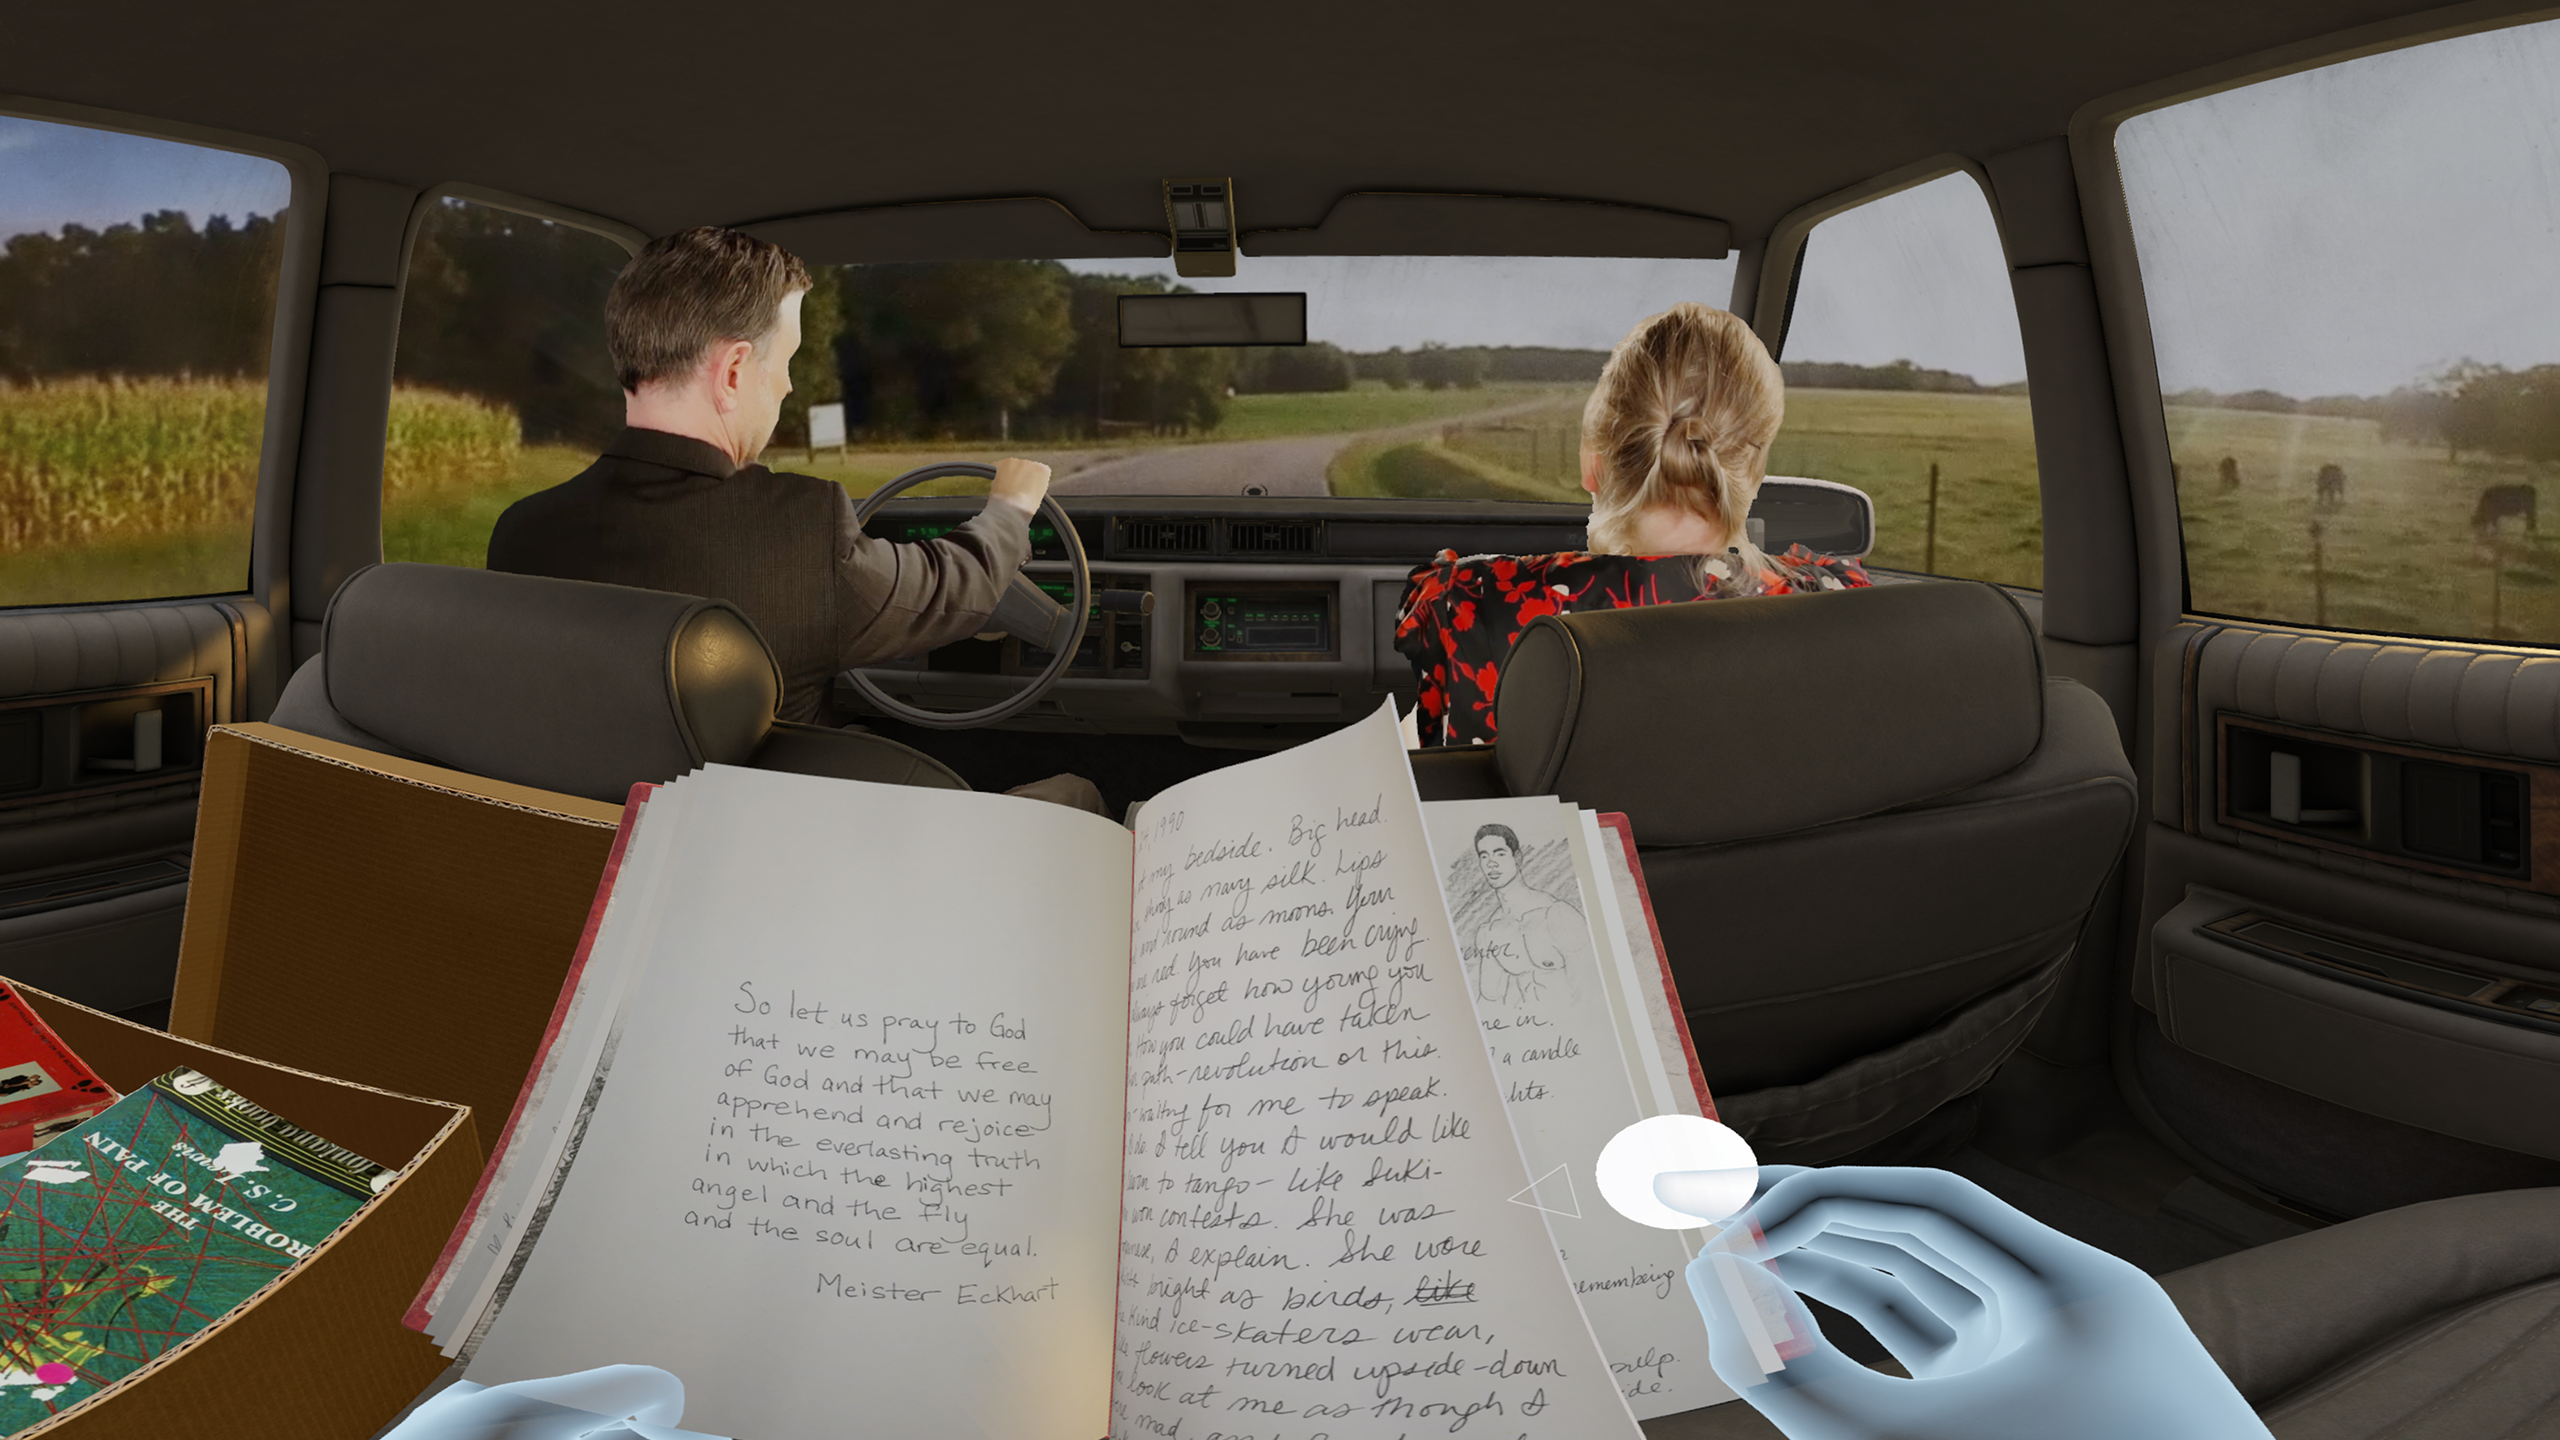 So let us pray to God
that we may be free
of God and that we may
apprehend and rejoice
in the everlasting truth
in which the highest
angel and the fly
and the soul are equal.
Meister Eckhart
1990
my bedside. Big head.
as navy silk. Lips
and round as moons. Your
red. You have been crying.
forget how young you
How you could have taken
path-revolution or this.
waiting for me to speak.
I tell you I would like
to tango- like Suki-
won contests. She was
I explain. She wore
bright as birds, like
kind ice-skaters wear,
flowers turned upside-down
look at me as though I
mad
me in.
a candle
remembering
pulp.
fontana books
C.S. Lewis
THE
PROBLEM OF PAIN